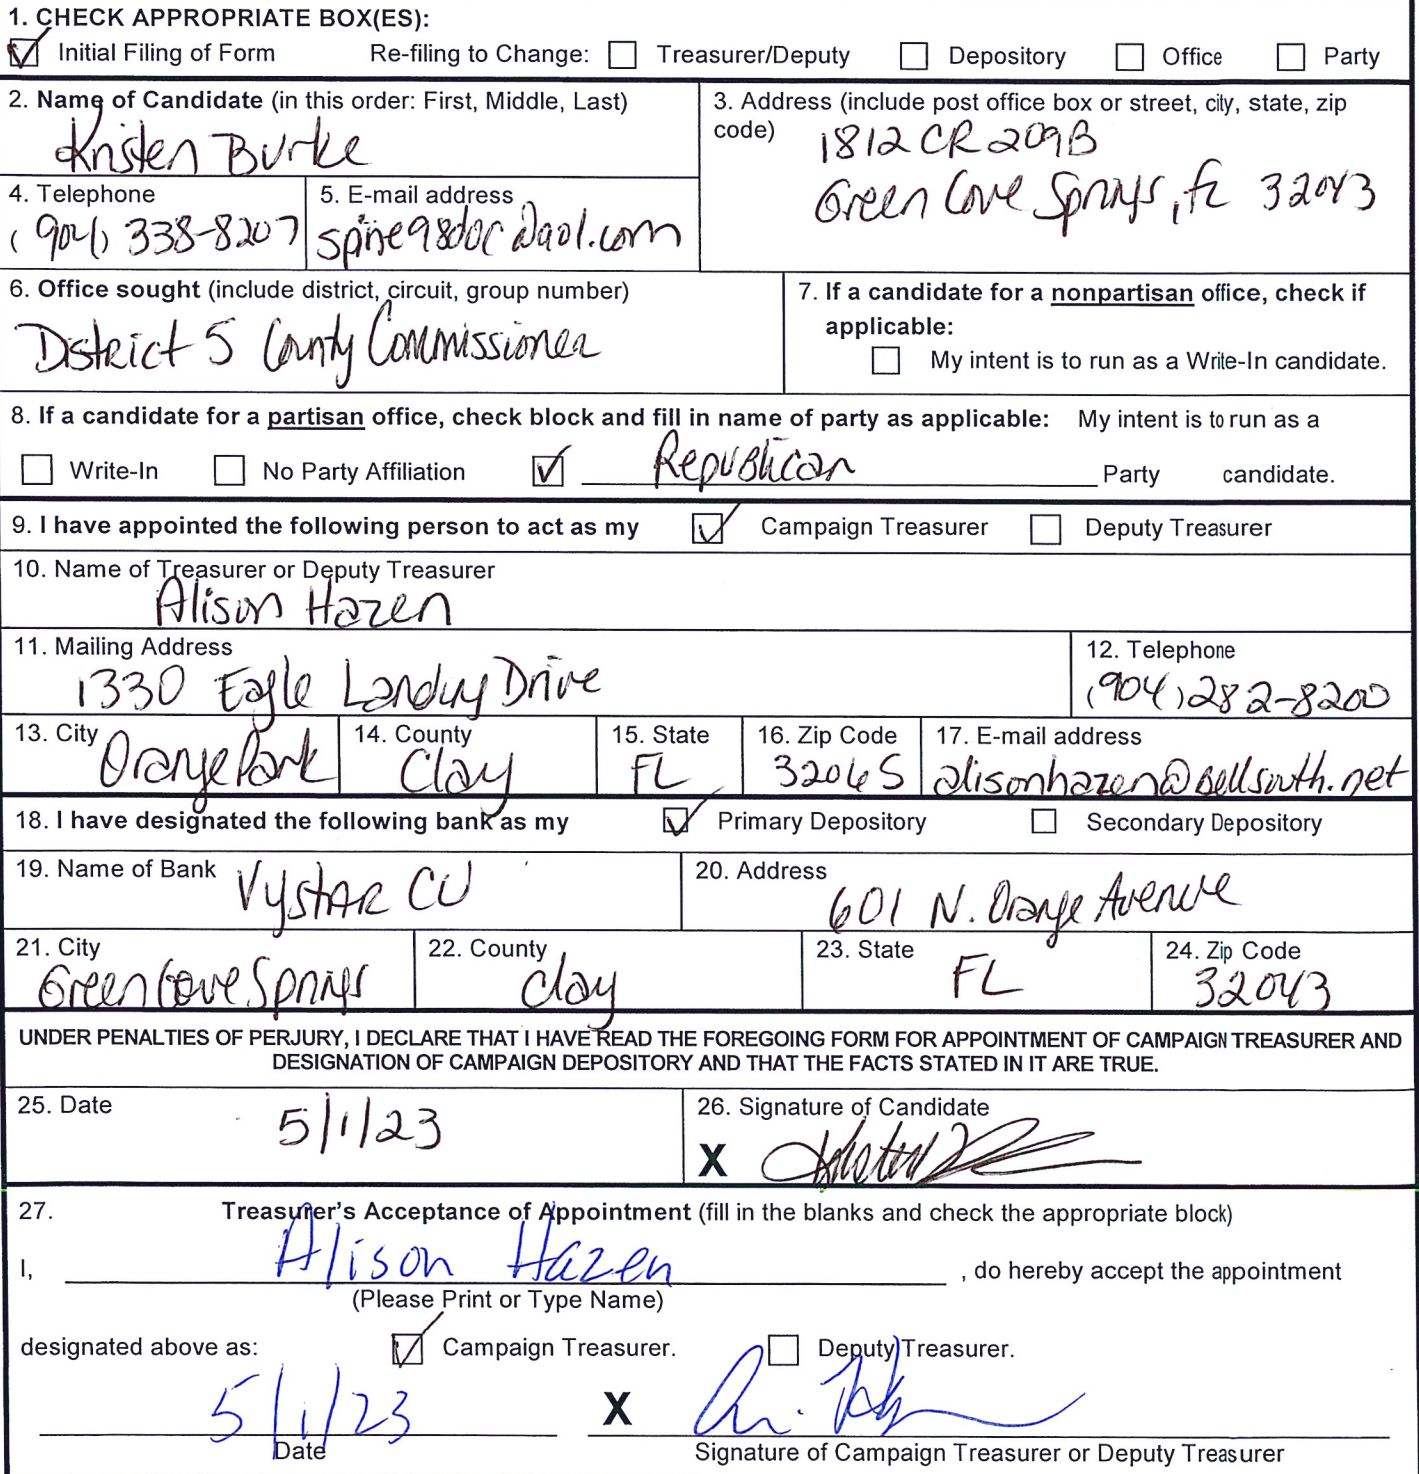 1. CHECK APPROPRIATE BOX(ES):
Initial Filing of Form Re-filing to Change: Treasurer/Deputy Depository Office Party
2. Name of Candidate (in this order: First, Middle, Last)
Kristen Burke
3. Address (include post office box or street, city, state, zip
code)
1812 CR 209B
Green Cove Springs, FL 32043
4. Telephone
(904) 338-8207
5. E-mail address
spine98doc@aol.com
6. Office sought (include district, circuit, group number)
District 5 County Commissioner
7. If a candidate for a nonpartisan office, check if
applicable:
My intent is to run as a Write-In candidate.
8. If a candidate for a partisan office, check block and fill in name of party as applicable: My intent is to run as a
Write-In No Party Affiliation Republican Party candidate.
9. I have appointed the following person to act as my Campaign Treasurer Deputy Treasurer
10. Name of Treasurer or Deputy Treasurer
Alison Hazen
11. Mailing Address
1330 Eagle Landing Drive
12. Telephone
(904) 282-8200
13. City
Orange Park
14. County
Clay
15. State
FL
16. Zip Code
32065
17. E-mail address
alisonhazen@bellsouth.net
18. I have designated the following bank as my Primary Depository Secondary Depository
19. Name of Bank
VyStar CU
20. Address
601 N. Orange Avenue
21. City
Green Cove Springs
22. County
Clay
23. State
FL
24. Zip Code
32043
UNDER PENALTIES OF PERJURY, I DECLARE THAT I HAVE READ THE FOREGOING FORM FOR APPOINTMENT OF CAMPAIGN TREASURER AND
DESIGNATION OF CAMPAIGN DEPOSITORY AND THAT THE FACTS STATED IN IT ARE TRUE.
25. Date
5/1/23
26. Signature of Candidate
X
27. Treasurer's Acceptance of Appointment (fill in the blanks and check the appropriate block)
I, Alison Hazen , do hereby accept the appointment
(Please Print or Type Name)
designated above as: Campaign Treasurer. Deputy Treasurer.
5/1/23 X
Date Signature of Campaign Treasurer or Deputy Treasurer